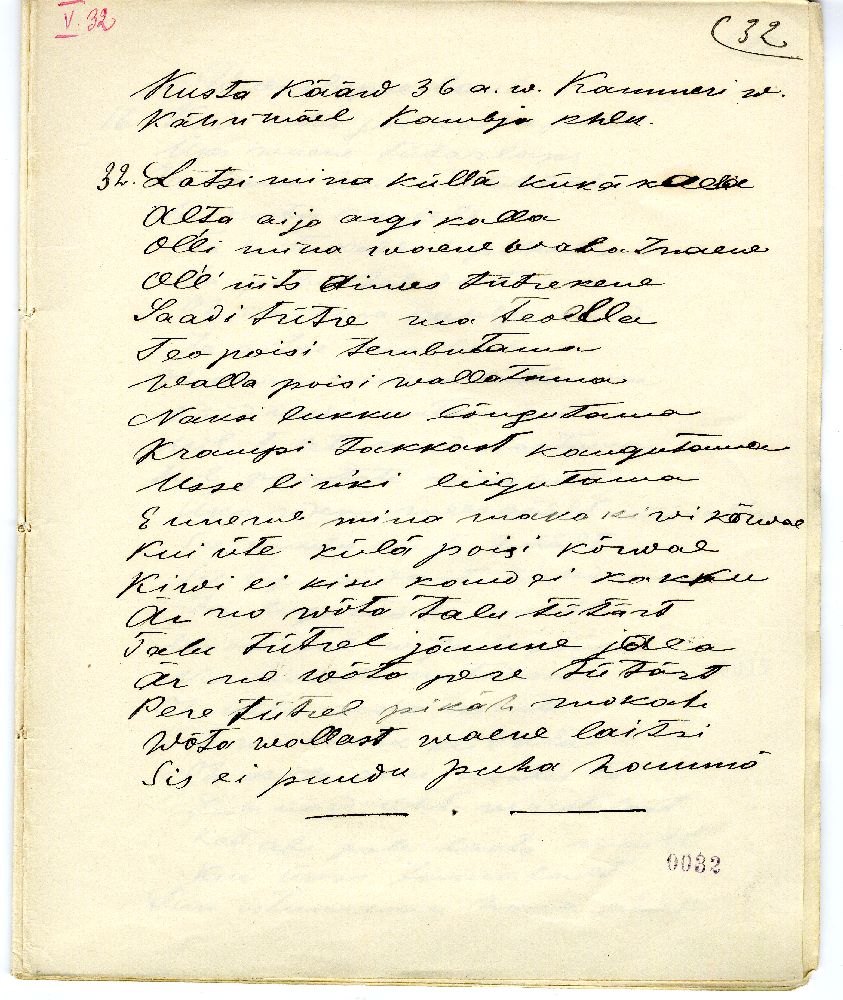 V. 32
32
Kusta Käärd 36 a. w. Kammeri w.
Kähri mäel Kambja khlk.
32. Lätsi mina küllä kükä
Alta aija argi kalla
Olli mina waene waba
Oll' üits ainus tütrekene
Saadi tütre ma Teolla
Teo poisi tembutama
Walla poisi wallatama
Naksi lukku lõngutama
Krampi takkast kangutama
Usse linki liigutama
Ennemb mina maka kiwi kõrwal
Kui üte külä poisi kõrwal
Kiwi ei kisu kand ei kakku
Är no wõta talu tütärt
Talu tütrel jämme jala
Är no wõta pere tütärt
Pere tütrel pikäh mokah
Wõta wallast waene laitsi
Sis ei puudu puha hammõ
0032